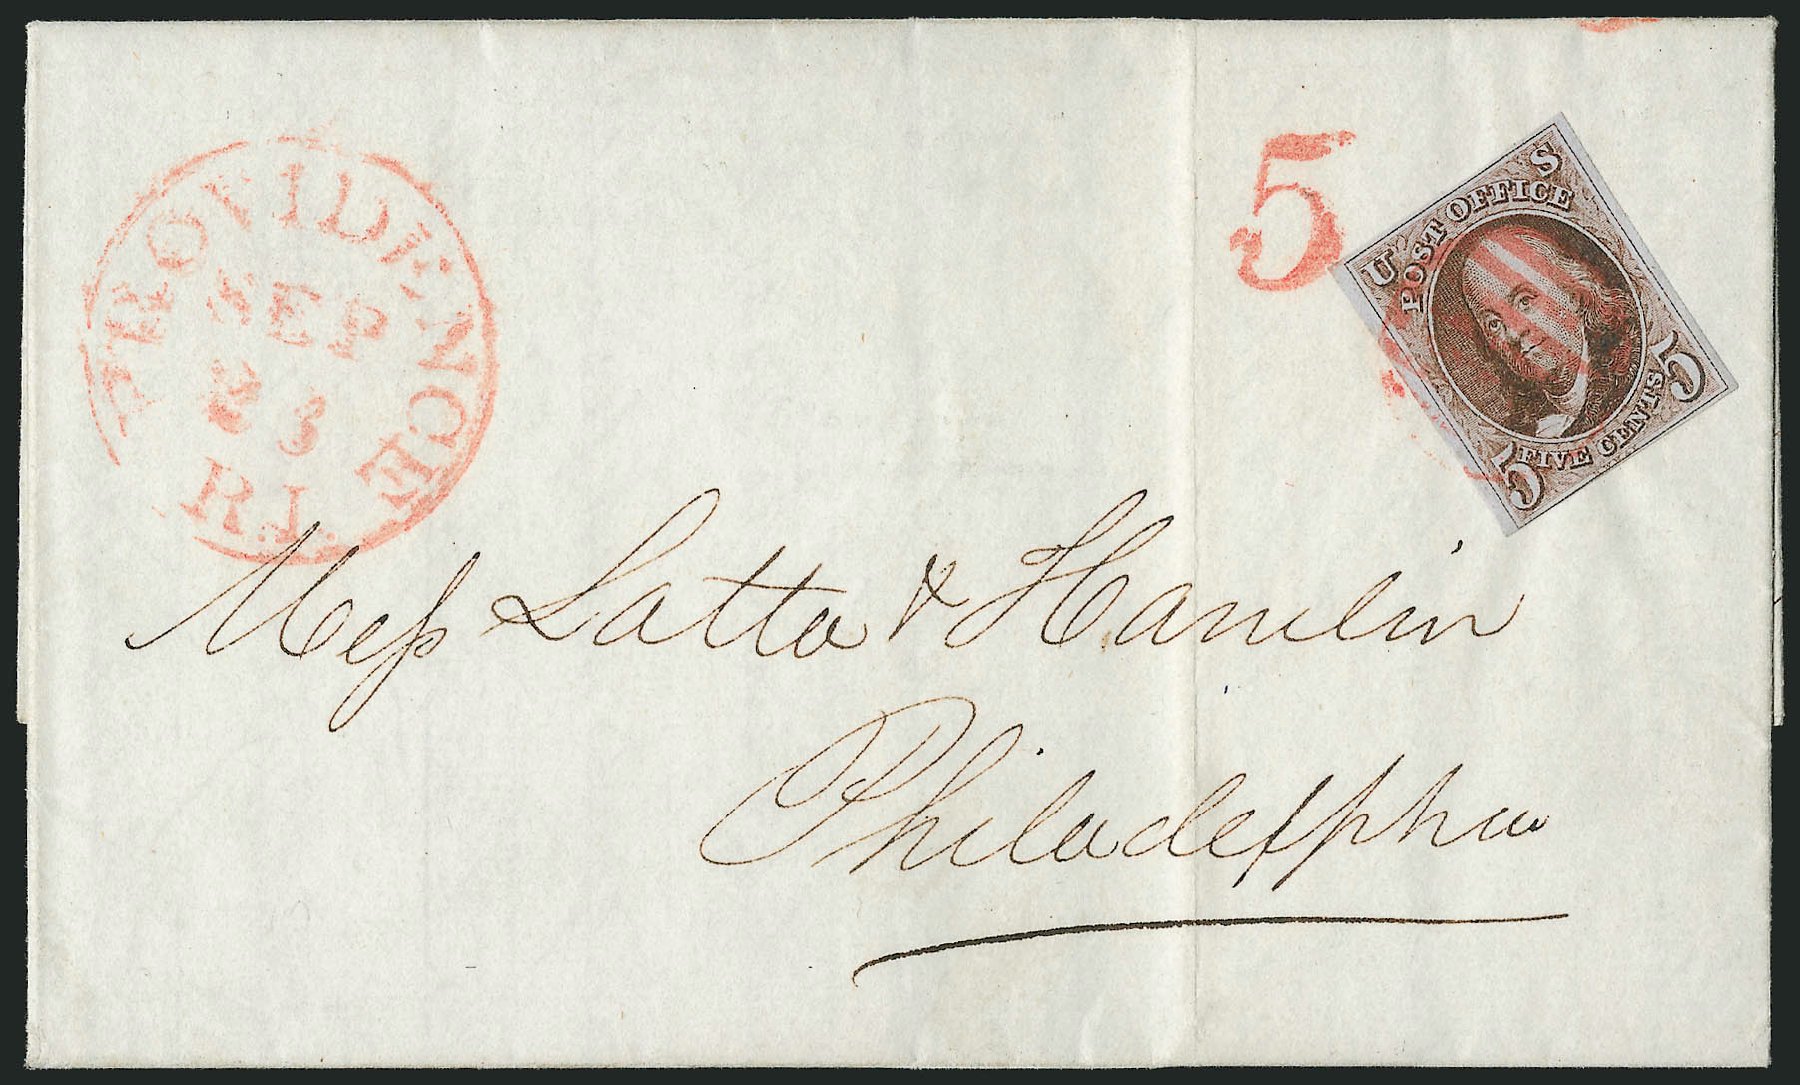 PROVIDENCE
SEP
23
R.I.
5
U S
POST OFFICE
5 FIVE CENTS 5
Mess Latta & Hamlin
Philadelphia